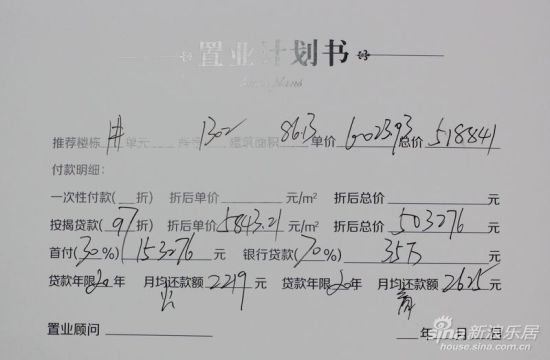 置业计划书
推荐楼栋 1# 单元 1302 建筑面积 86.13 单价 6023.93 总价 518841
付款明细：
一次性付款(__折) 折后单价____元/m² 折后总价____元
按揭贷款(97折) 折后单价5843.21元/m² 折后总价503276元
首付(30%)153276元 银行贷款(70%)35万元
贷款年限20年 月均还款额2219元 贷款年限20年 月均还款额2625元
公 商
置业顾问____ __年__月__日
sina新浪乐居
house.sina.com.cn